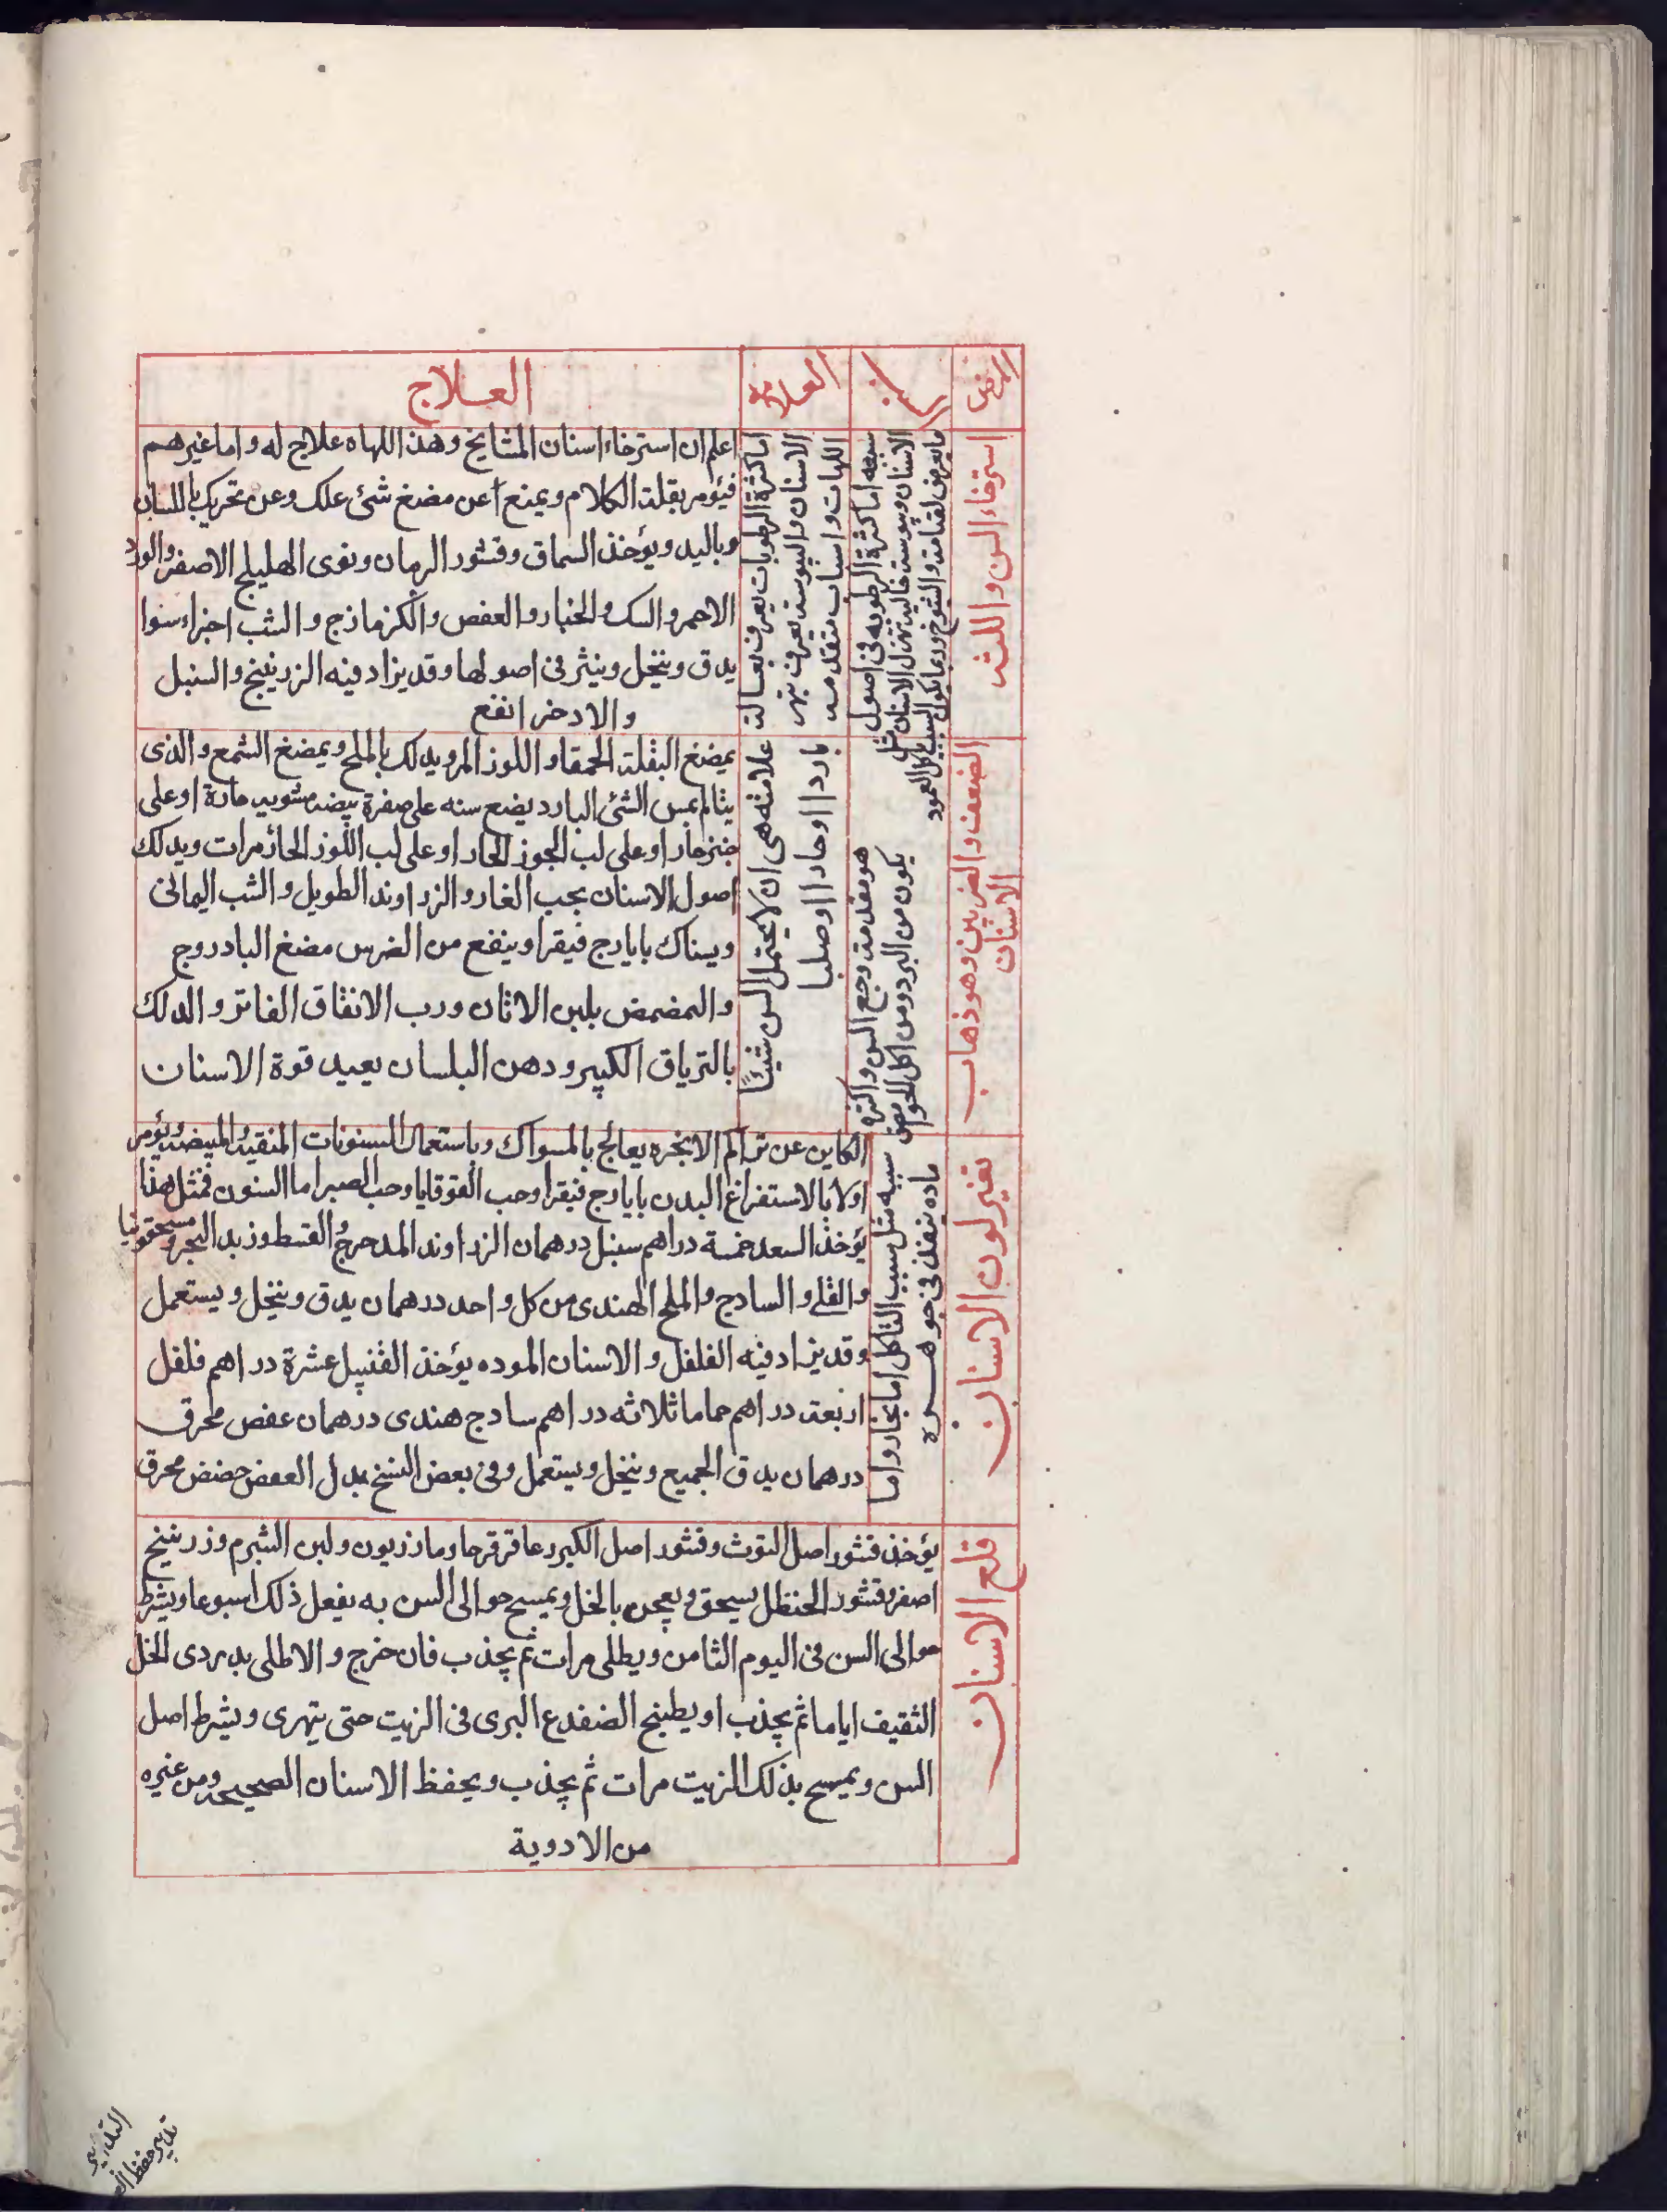 المرض
السبب
العلامة
العلاج
استرخاء السن واللثه
سببه اما كثرة الرطوبه فى اصول
الاسنان ويبوسة غالبة تهزل الاسنان مثل
ما يعرض لقيامه والشيوخ وربما يكون السبب تاكل العمود
اما كثرة الرطوبات يعرف بعسالة
الاسنان واليبوسة يعرف بهر
اللهات واسباب متقدمه
اعلم ان استرخاء اسنان المشايخ وهذا اللهاه علاج له واما غيرهم
فيؤمر بقلة الكلام ويمنع عن مضغ شئ علك وعن تحريك باللسان
وباليد ويؤخذ السماق وقشور الرمان ونوى الهليلج الاصفر والورد
الاحمر والسك والجنبار والعفص والكزمازج والشب اجزاء سوا
يدق وينخل وينثر فى اصولها وقد يزاد فيه الزرنيخ والسنبل
والادخر انفع
الضعف والضرس وهو ذهاب
الاسنان
هو مقدمة وجع السن واكثره
يكون من البرد ومن اكل الحوامض
علامته هى ان لا يحتمل السن شيئًا
باردا او حارا او صلبا
يمضغ البقلة الحمقا واللوز المر ويدلك بالملح ويمضغ الشمع والذى
يتالم بمس الشئ البارد يضع سنه على صفرة بيضه مشويه حارة او على
خبز حار او على لب الجوز الحار او على لب اللوز الحار مرات ويدلك
اصول الاسنان بحب الغار والزراوند الطويل والشب اليمانى
ويستاك بايارج فيقرا وينفع من الضرس مضغ البادروج
والتمضمض بلبن الاتان ورب الانفاق الفاتر والدلك
بالترياق الكبير ودهن البلسان يعيد قوة الاسنان
تغير لون الاسنان
سببه مثل سبب التاكل اما بخار واما
ماده تنفذ فى جوهره
الكاين عن تراكم الابخره يعالج بالمسواك وباستعمال السنونات المنقيه المبيضه ويؤمر
اولا بالاستفراغ البدن بايارج فيقرا وحب القوقايا وحب الصبر اما السنون فمثل هذا
يؤخذ السعد خمسة دراهم سنبل درهمان الزراوند المدحرج والقسط وزبد البحر ومسحقونيا
والقلى والسادج والملح الهندى من كل واحد درهمان يدق وينخل ويستعمل
وقد يزاد فيه الفلفل والاسنان الموده يؤخذ القنبيل عشرة دراهم فلفل
اربعة دراهم حماما ثلاثه دراهم سادج هندى درهمان عفص محرق
درهمان يدق الجميع وينخل ويستعمل وفى بعض النسخ بدل العفص حضض محرق
قلع الاسنان
يؤخذ قشور اصل التوث وقشور اصل الكبر وعاقرقرحا ومازريون ولبن الشبرم وزرنيخ
اصفر وقشور الحنظل يسحق ويعجن بالخل ويمسح حوالى السن به يفعل ذلك اسبوعا ويشرط
حوالى السن فى اليوم الثامن ويطلى مرات ثم يجذب فان خرج والا طلى بدردى الخل
الثقيف اياما ثم يجذب او يطبخ الضفدع البرى فى الزيت حتى يتهرى ويشرط اصل
السن ويمسح بذلك الزيت مرات ثم يجذب ويحفظ الاسنان الصحيحه ومن غيره
من الادوية
التدبير
تدبير حفظ